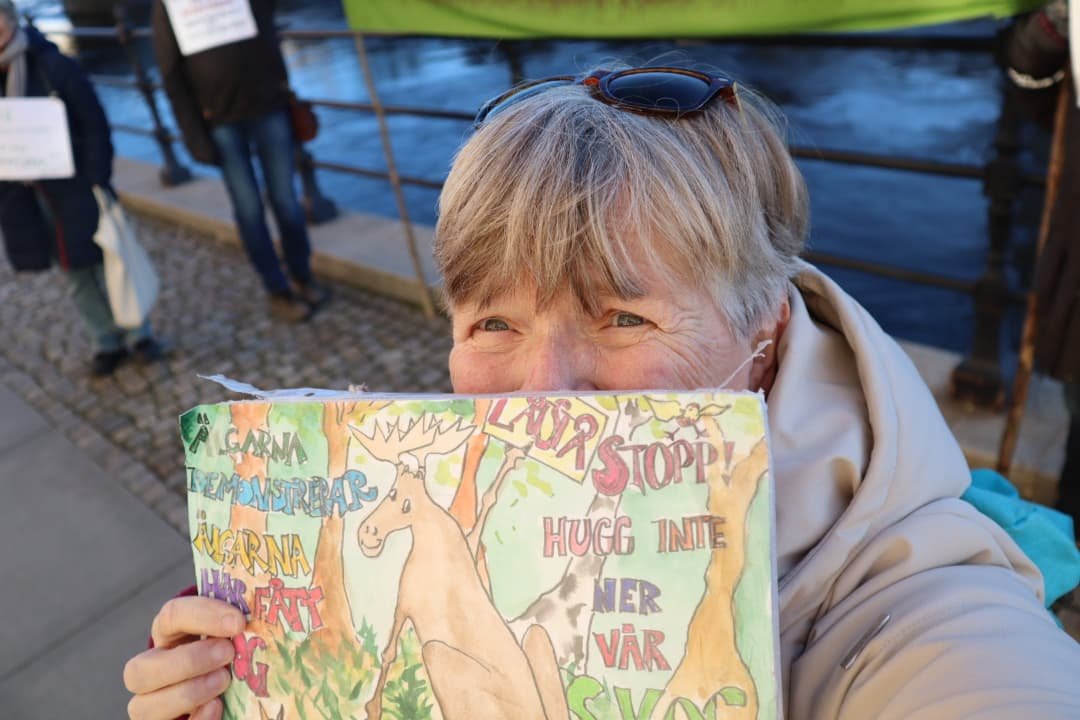 ÄLGARNA
DEMONSTRERAR
ÄLGARNA
HAR FÅTT
OG
STOPP!
HUGG INTE
NER
VÅR
SKOG